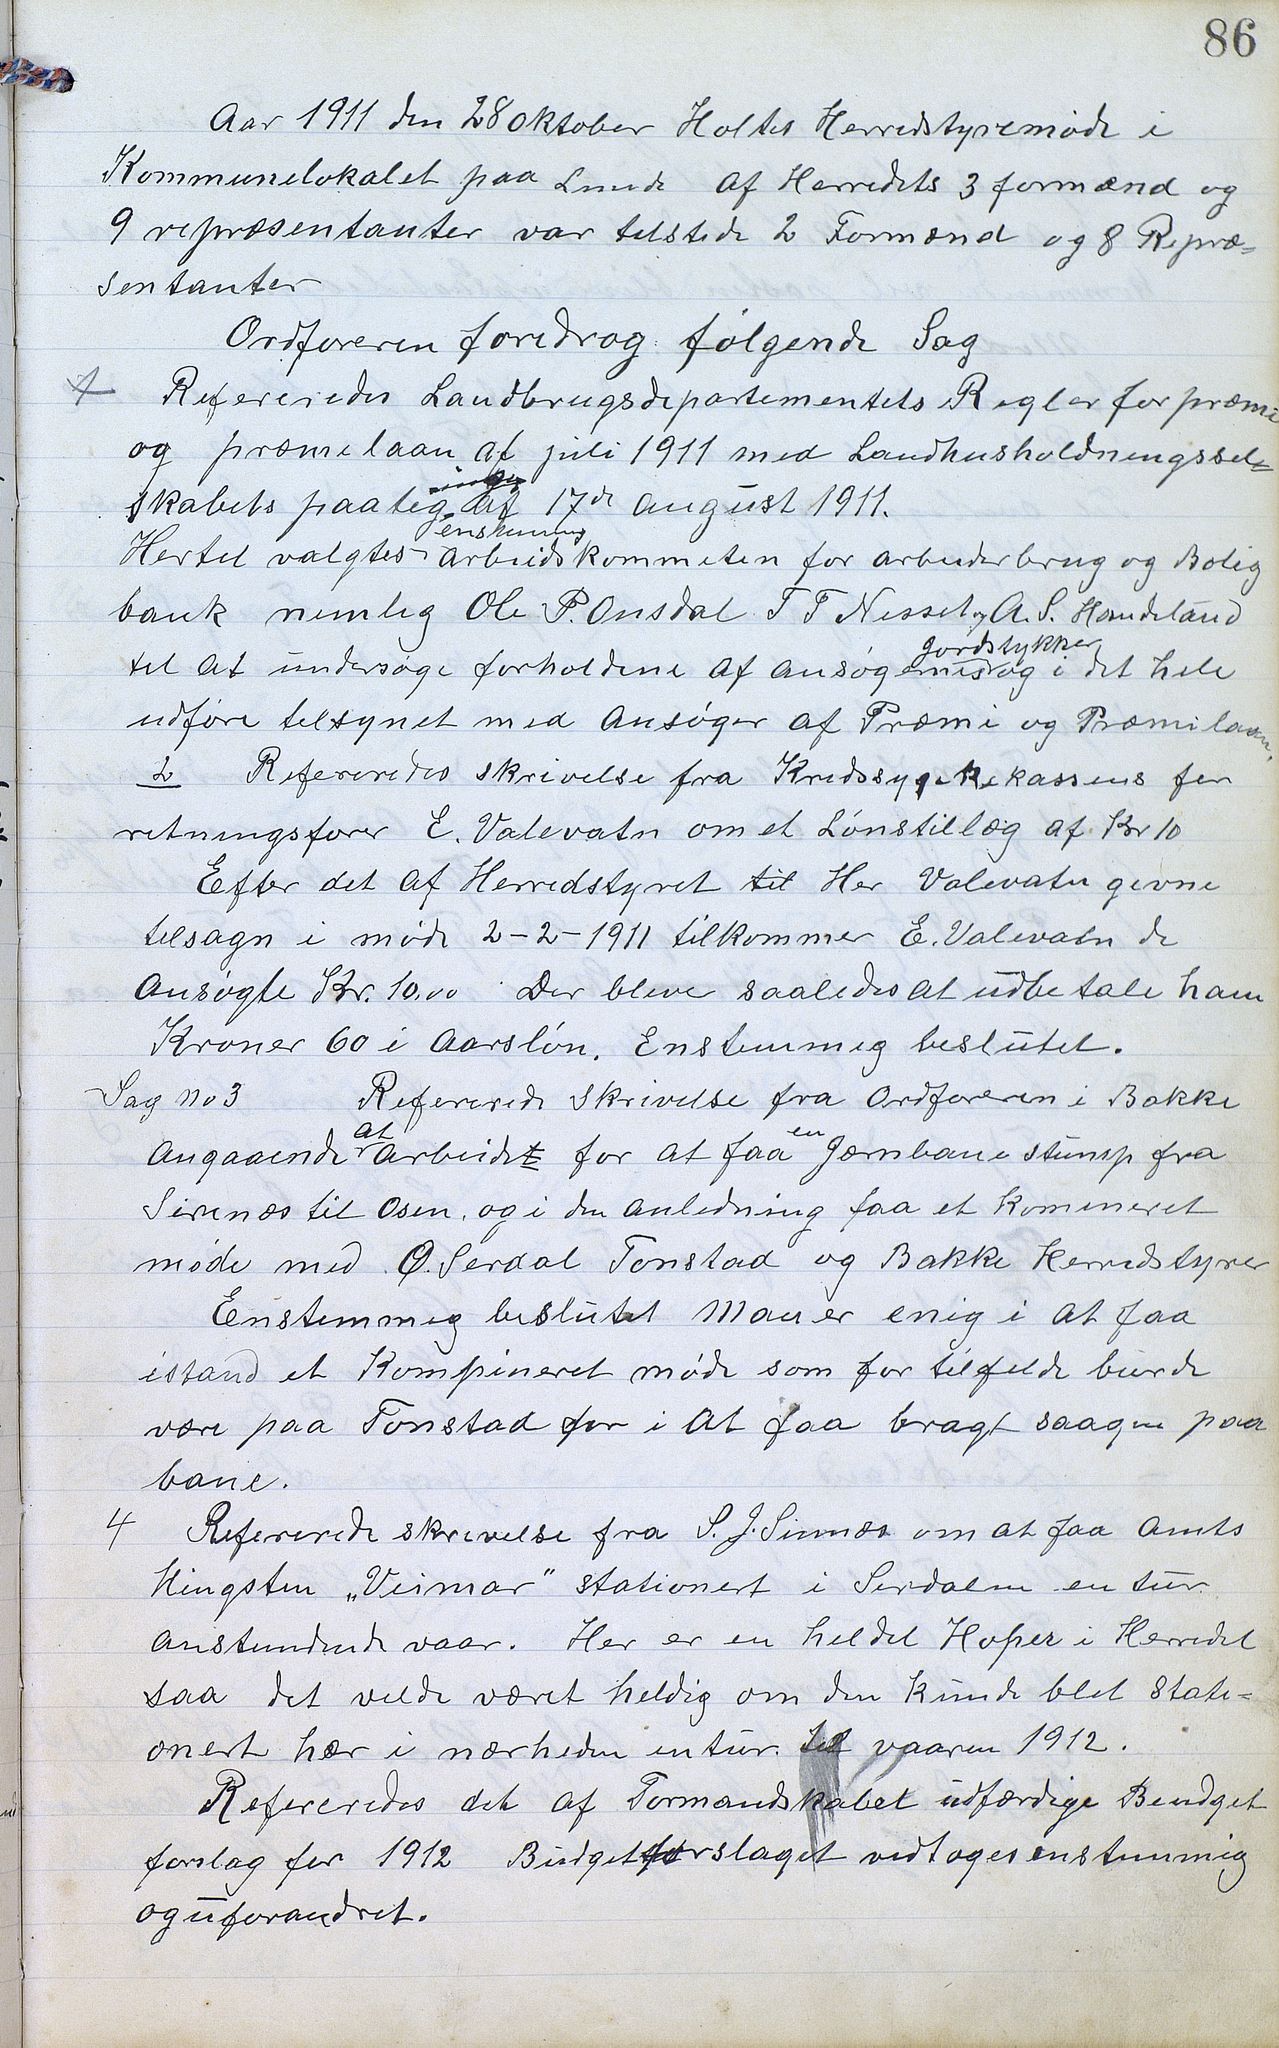 86
Aar 1911 den 28 oktober Holtes Herredstyremøde i
Kommunelokalet paa Lunde af Herredets 3 formænd og
9 repræsentanter var tilstede 2 Formænd og 8 Repræ=
sentanter
Ordføreren foredrog følgende Sag
1 Refereredes Landbrugsdepartementets Regler for præmi
og præmelaan af juli 1911 med Landhusholdningssel=
skabets paateg af 17de august 1911.
Hertil valgtes enstemmig arbeidskommeten for arbeiderbrug og Bolig
bank nemlig Ole P. Ousdal T T Nesset og A. S. Handeland
til at undersøge forholdene af ansøgernes jordstykker og i det hele
udføre tilsynet med Ansøger af Præmi og Præmilaan.
2 Refereredes skrivelse fra Kredssygekassens for
retningsfører E. Valevatn om et Lønstillæg af Kr 10
Efter det af Herredstyret til Her Valevatn givne
tilsagn i møde 2-2-1911 tilkommer E. Valevatn de
ansøgte Kr. 10.00 Der bleve saaledes at udbetale ham
Kroner 60 i Aarsløn. Enstemmig beslutet.
Sag no 3 Refererede skrivelse fra Ordføreren i Bakke
angaaende at arbeidet for at faa en Jærnbane stump fra
Sirenæs til Osen, og i den anledning faa et komineret
møde med Ø. Serdal Tonstad og Bakke Herredstyrer
Enstemmig beslutet Man er enig i at faa
istand et Kompineret møde som for tilfelde burde
være paa Tonstad for i at faa bragt saagen paa
bane.
4 Refererede skrivelse fra S. J. Sinnæs om at faa Amts
Hingsten „Veimar" stationert i Serdalen en tur
anstundende vaar. Her er en heldel Hoper i Herredet
saa det vilde været heldig om den kunde blet stati=
onert hær i nærheden en tur til vaaren 1912.
Refereredes det af Formandskabet udfærdige Beudget
forslag for 1912 Budgetforslaget vedtoges enstemmig
og uforandret.